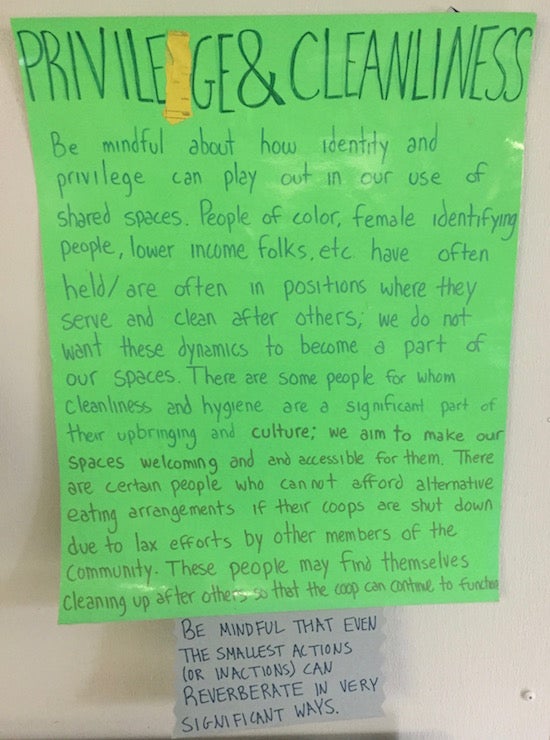 PRIVILEGE & CLEANLINESS
Be mindful about how identity and
privilege can play out in our use of
shared spaces. People of color, female identifying
people, lower income folks, etc. have often
held/are often in positions where they
serve and clean after others; we do not
want these dynamics to become a part of
our spaces. There are some people for whom
cleanliness and hygiene are a significant part of
their upbringing and culture; we aim to make our
spaces welcoming and and accessible for them. There
are certain people who cannot afford alternative
eating arrangements if their coops are shut down
due to lax efforts by other members of the
Community. These people may find themselves
cleaning up after others so that the coop can continue to function
BE MINDFUL THAT EVEN
THE SMALLEST ACTIONS
(OR INACTIONS) CAN
REVERBERATE IN VERY
SIGNIFICANT WAYS.